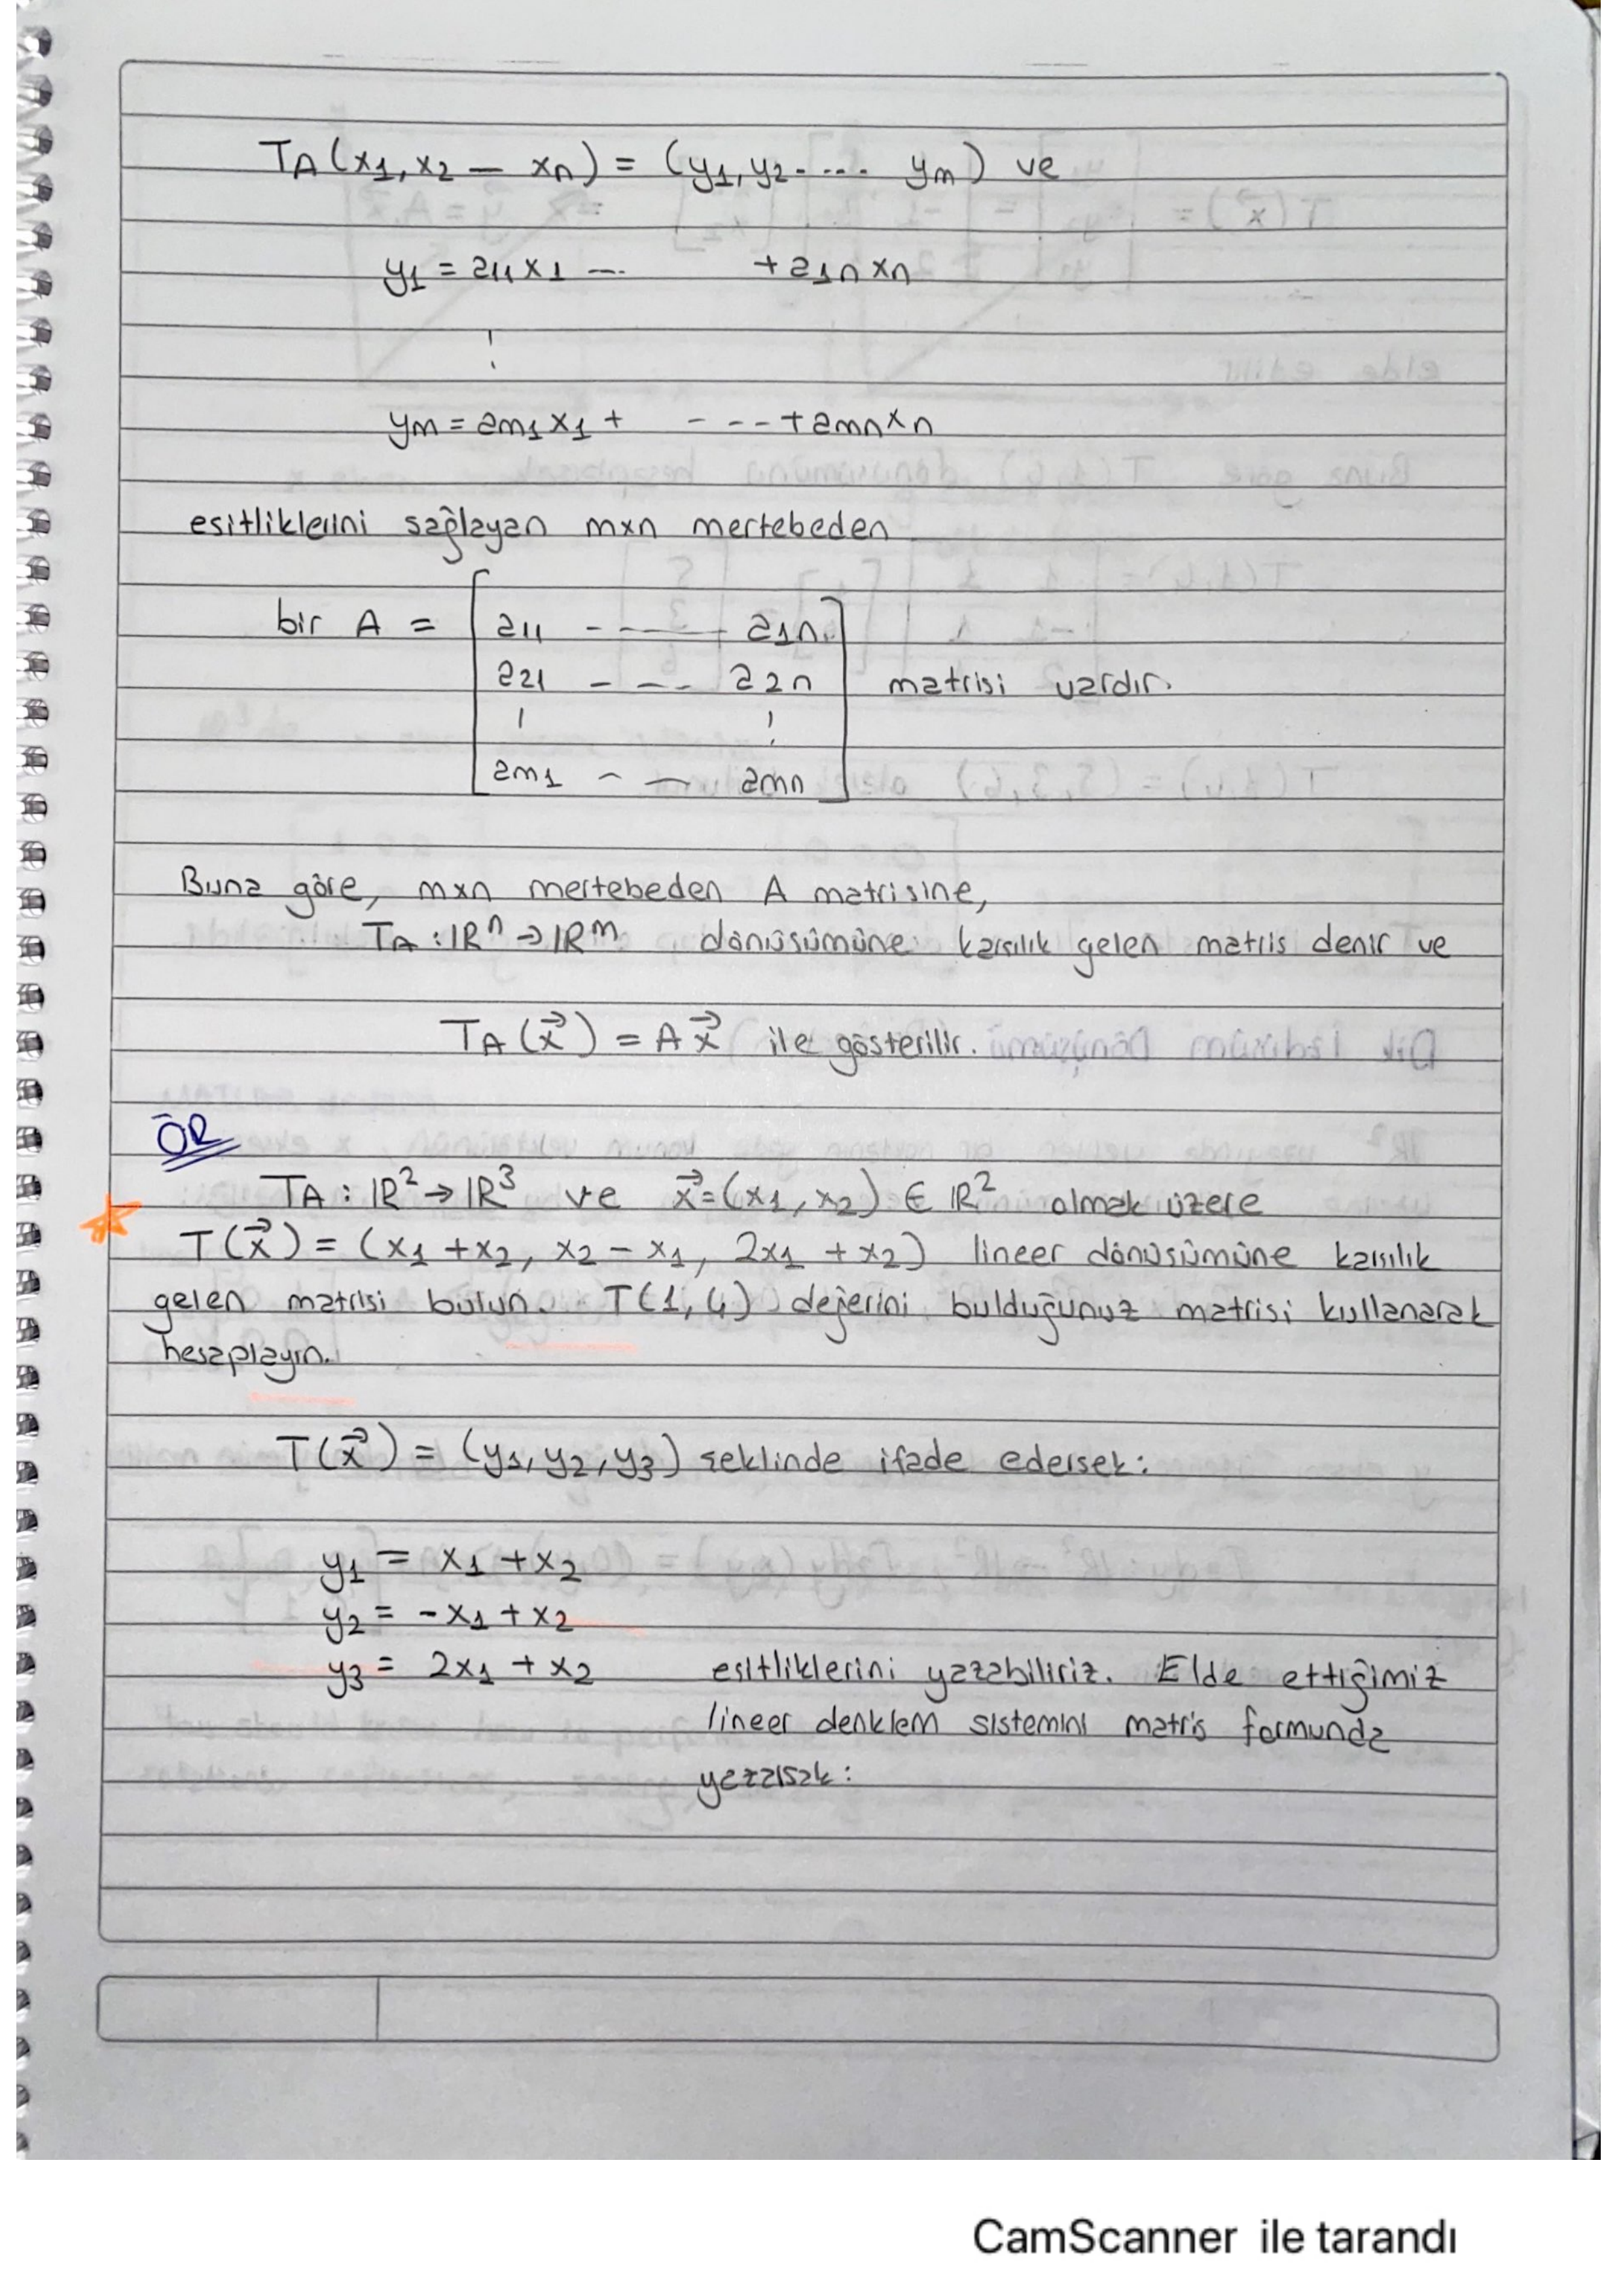 TA(x1, x2 — xn) = (y1, y2. ... ym) ve
y1 = a11 x1 —. + a1n xn
⋮
ym = am1 x1 + - - - + amn xn
esitliklerini sağlayan mxn mertebeden
bir A = [ a11 - —— a1n
a21 - - - a22n
⋮ ⋮
am1 - — amn ] matrisi vardır.
Buna göre, mxn mertebeden A matrisine,
TA : ℝⁿ → ℝᵐ dönüsümüne karsılık gelen matris denir ve
TA (x⃗) = A x⃗ ile gösterilir.
ÖR
TA : ℝ² → ℝ³ ve x⃗ = (x1, x2) ∈ ℝ² olmak üzere
T(x⃗) = (x1 + x2, x2 - x1, 2x1 + x2) lineer dönüsümüne karsılık
gelen matrisi bulun. T(1,4) değerini bulduğunuz matrisi kullanarak
hesaplayın.
T(x⃗) = (y1, y2, y3) seklinde ifade edersek:
y1 = x1 + x2
y2 = -x1 + x2
y3 = 2x1 + x2 esitliklerini yazabiliriz. Elde ettiğimiz
lineer denklem sistemini matris formunda
yazarsak:
CamScanner ile tarandı